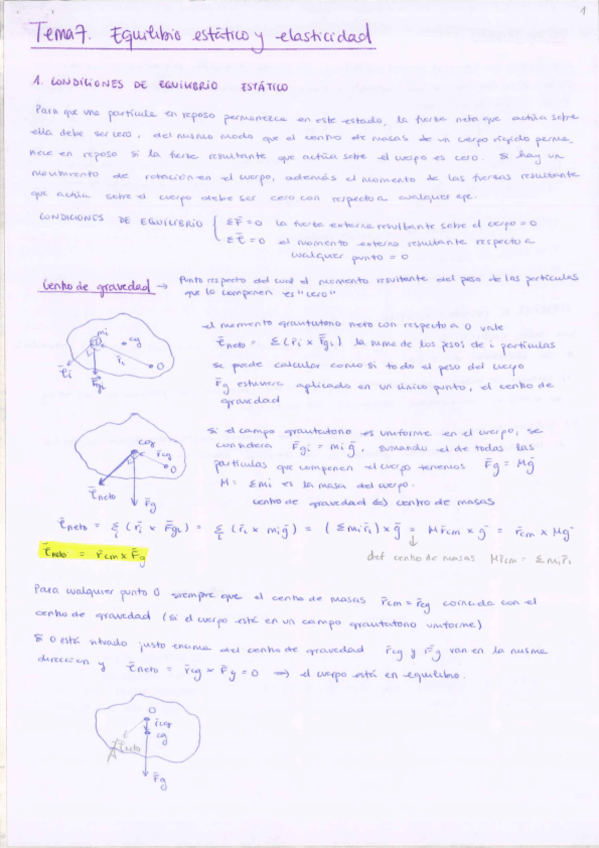 1
Tema 7. Equilibrio estático y elasticidad
1. CONDICIONES DE EQUILIBRIO ESTÁTICO
Para que una partícula en reposo permanezca en este estado, la fuerza neta que actúa sobre
ella debe ser cero, del mismo modo que el centro de masas de un cuerpo rígido perma-
nece en reposo si la fuerza resultante que actúa sobre el cuerpo es cero. Si hay un
movimiento de rotación en el cuerpo, además el momento de las fuerzas resultante
que actúa sobre el cuerpo debe ser cero con respecto a cualquier eje.
CONDICIONES DE EQUILIBRIO { ΣF̄ = 0 la fuerza externa resultante sobre el cuerpo = 0
Στ̄ = 0 el momento externo resultante respecto a
cualquier punto = 0
Centro de gravedad → Punto respecto del cual el momento resultante del peso de las partículas
que lo componen es "cero"
mi
cg
r̄i
O
τ̄i
F̄gi
el momento gravitatorio neto con respecto a O vale
τ̄neto = Σ(r̄i × F̄gi) la suma de los pesos de i partículas
se puede calcular como si todo el peso del cuerpo
F̄g estuviera aplicado en un único punto, el centro de
gravedad
cg
r̄cg
O
τ̄neto
F̄g
Si el campo gravitatorio es uniforme en el cuerpo, se
considera F̄gi = mi ḡ, sumando el de todas las
partículas que componen el cuerpo tenemos F̄g = Mḡ
M = Σmi es la masa del cuerpo.
centro de gravedad ⇔ centro de masas
τ̄neto = Σi (r̄i × F̄gi) = Σi (r̄i × miḡ) = (Σmir̄i) × ḡ = Mr̄cm × ḡ = r̄cm × Mḡ
↓
τ̄neto = r̄cm × F̄g
def centro de masas Mr̄cm = Σmir̄i
Para cualquier punto O siempre que el centro de masas r̄cm = r̄cg coincida con el
centro de gravedad (si el cuerpo está en un campo gravitatorio uniforme)
Si O está situado justo encima del centro de gravedad r̄cg y F̄g van en la misma
dirección y τ̄neto = r̄cg × F̄g = 0 ⇒ el cuerpo está en equilibrio.
O
r̄cg
cg
τ̄neto
F̄g